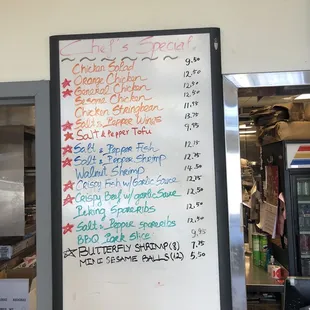 Chef's Special
Chicken Salad 9.50
Orange Chicken 12.50
General Chicken 12.50
Sesame Chicken 12.50
Chicken Stringbean 11.50
Salt & Pepper Wings 13.75
Salt & Pepper Tofu 9.95
Salt & Pepper Fish 12.75
Salt & Pepper Shrimp 12.75
Walnut Shrimp 14.75
Crispy Fish w/ Garlic Sauce 12.75
Crispy Beef w/ garlic Sauce 12.50
Peking Spareribs 12.50
Salt & Pepper spareribs 12.50
BBQ Pork Slice 9.95
BUTTERFLY SHRIMP (8) 7.75
MINI SESAME BALLS (12) 5.50